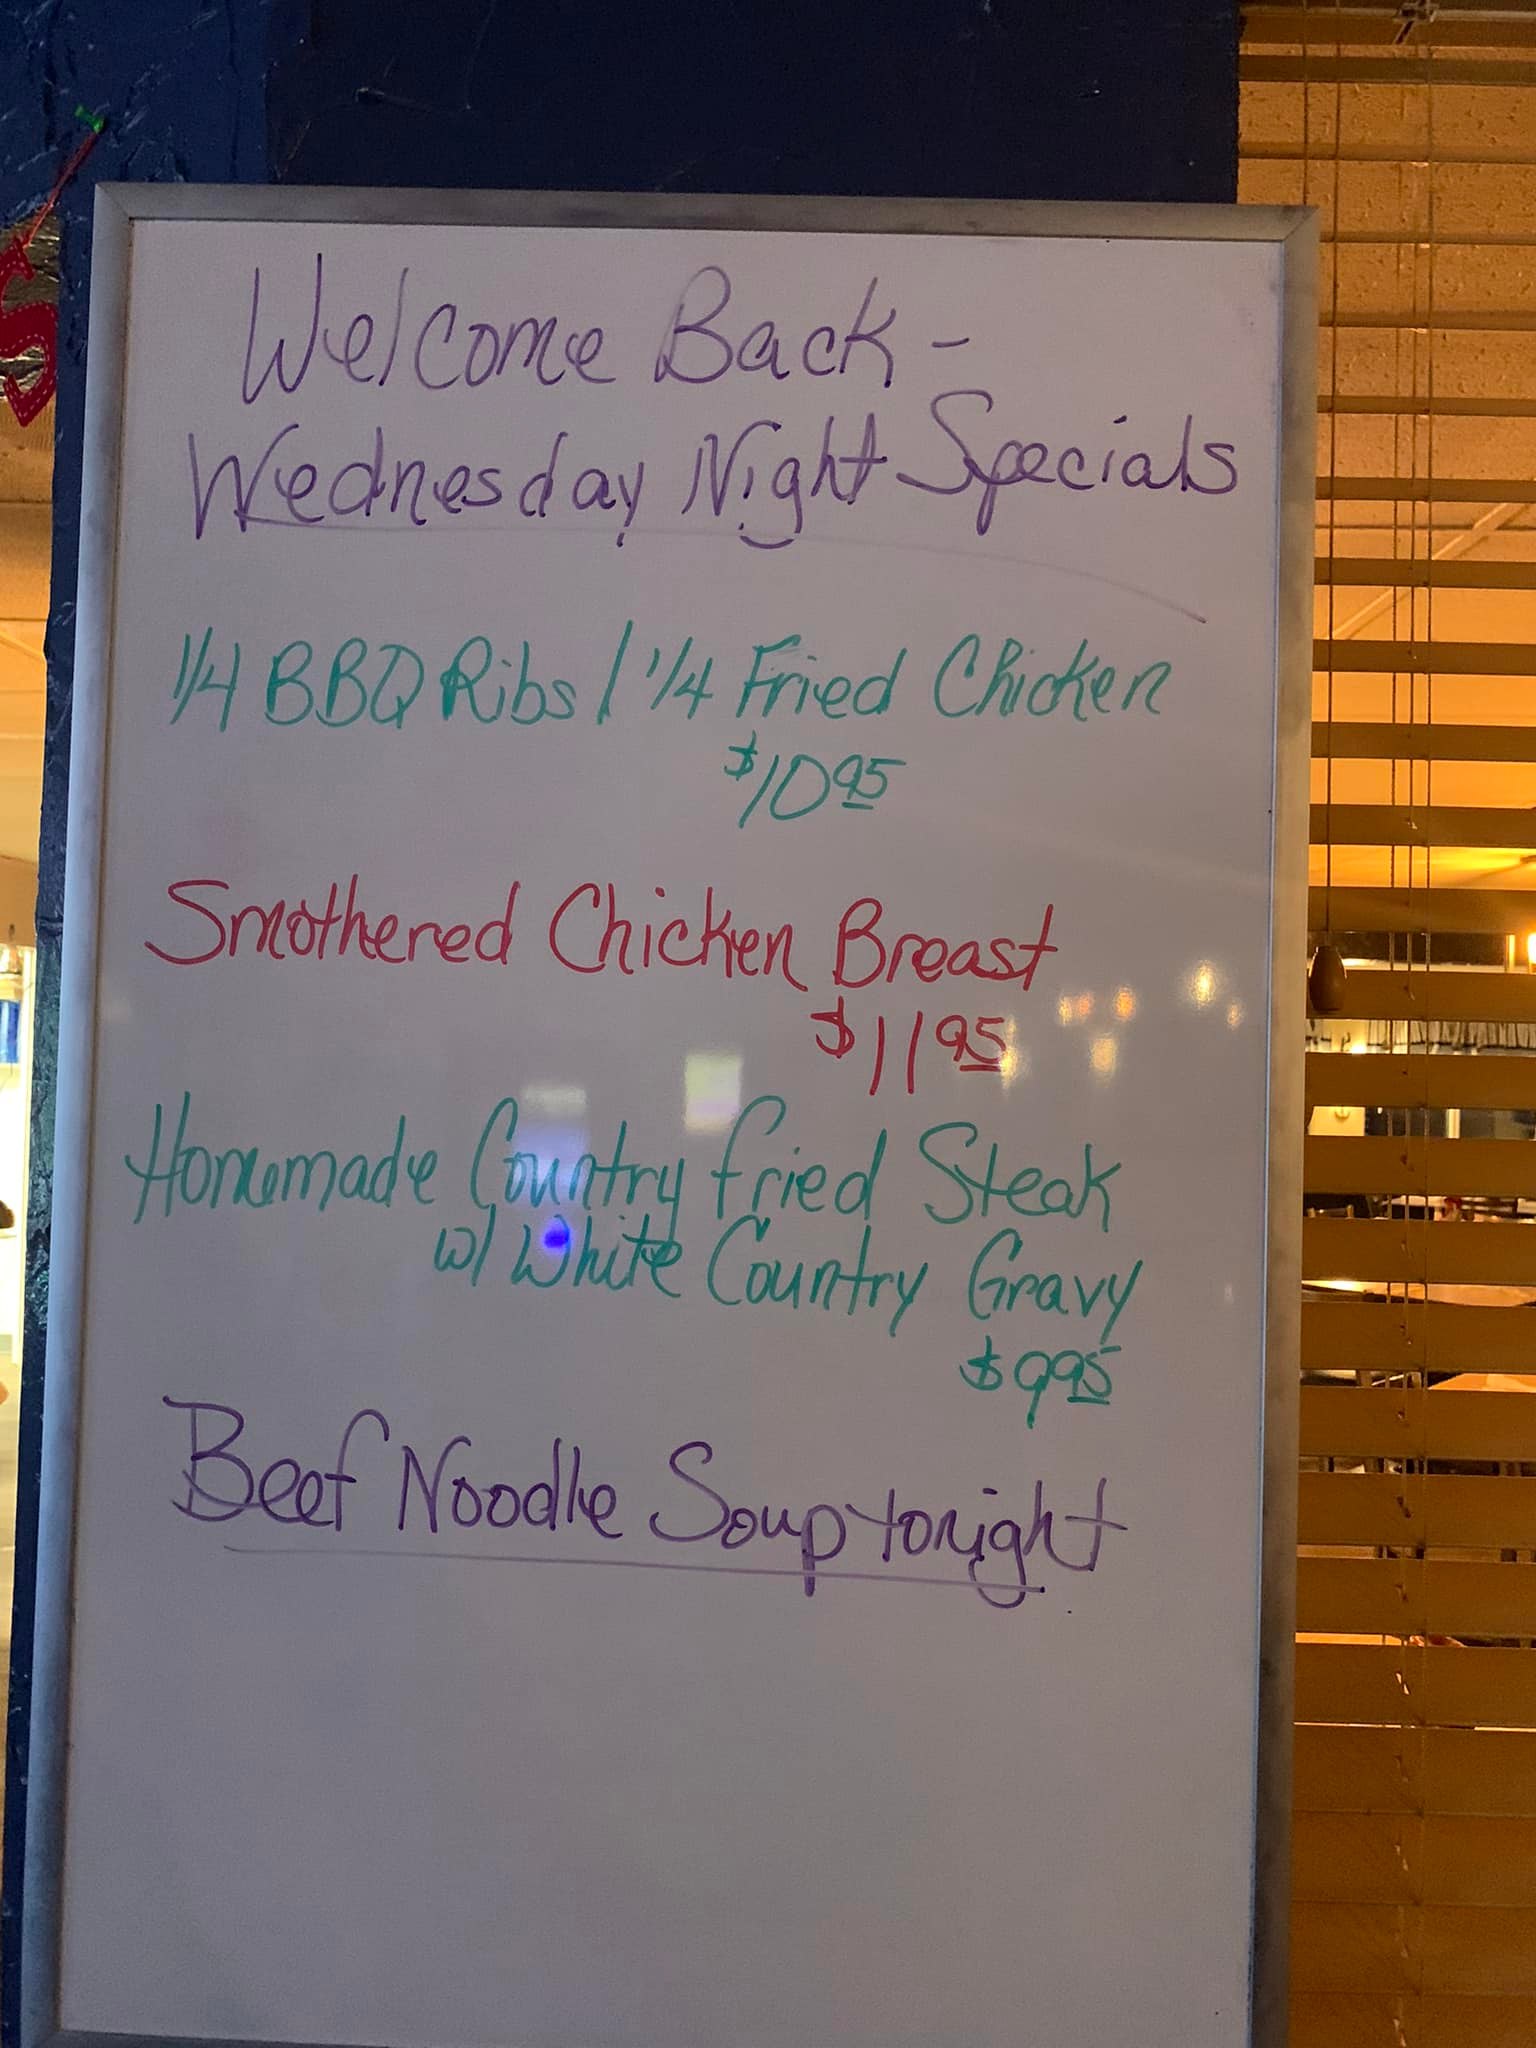 Welcome Back -
Wednesday Night Specials
1/4 BBQ Ribs / 1/4 Fried Chicken
$10 95
Smothered Chicken Breast
$11 95
Homemade Country fried Steak
w/ White Country Gravy
$9 95
Beef Noodle Soup tonight
S